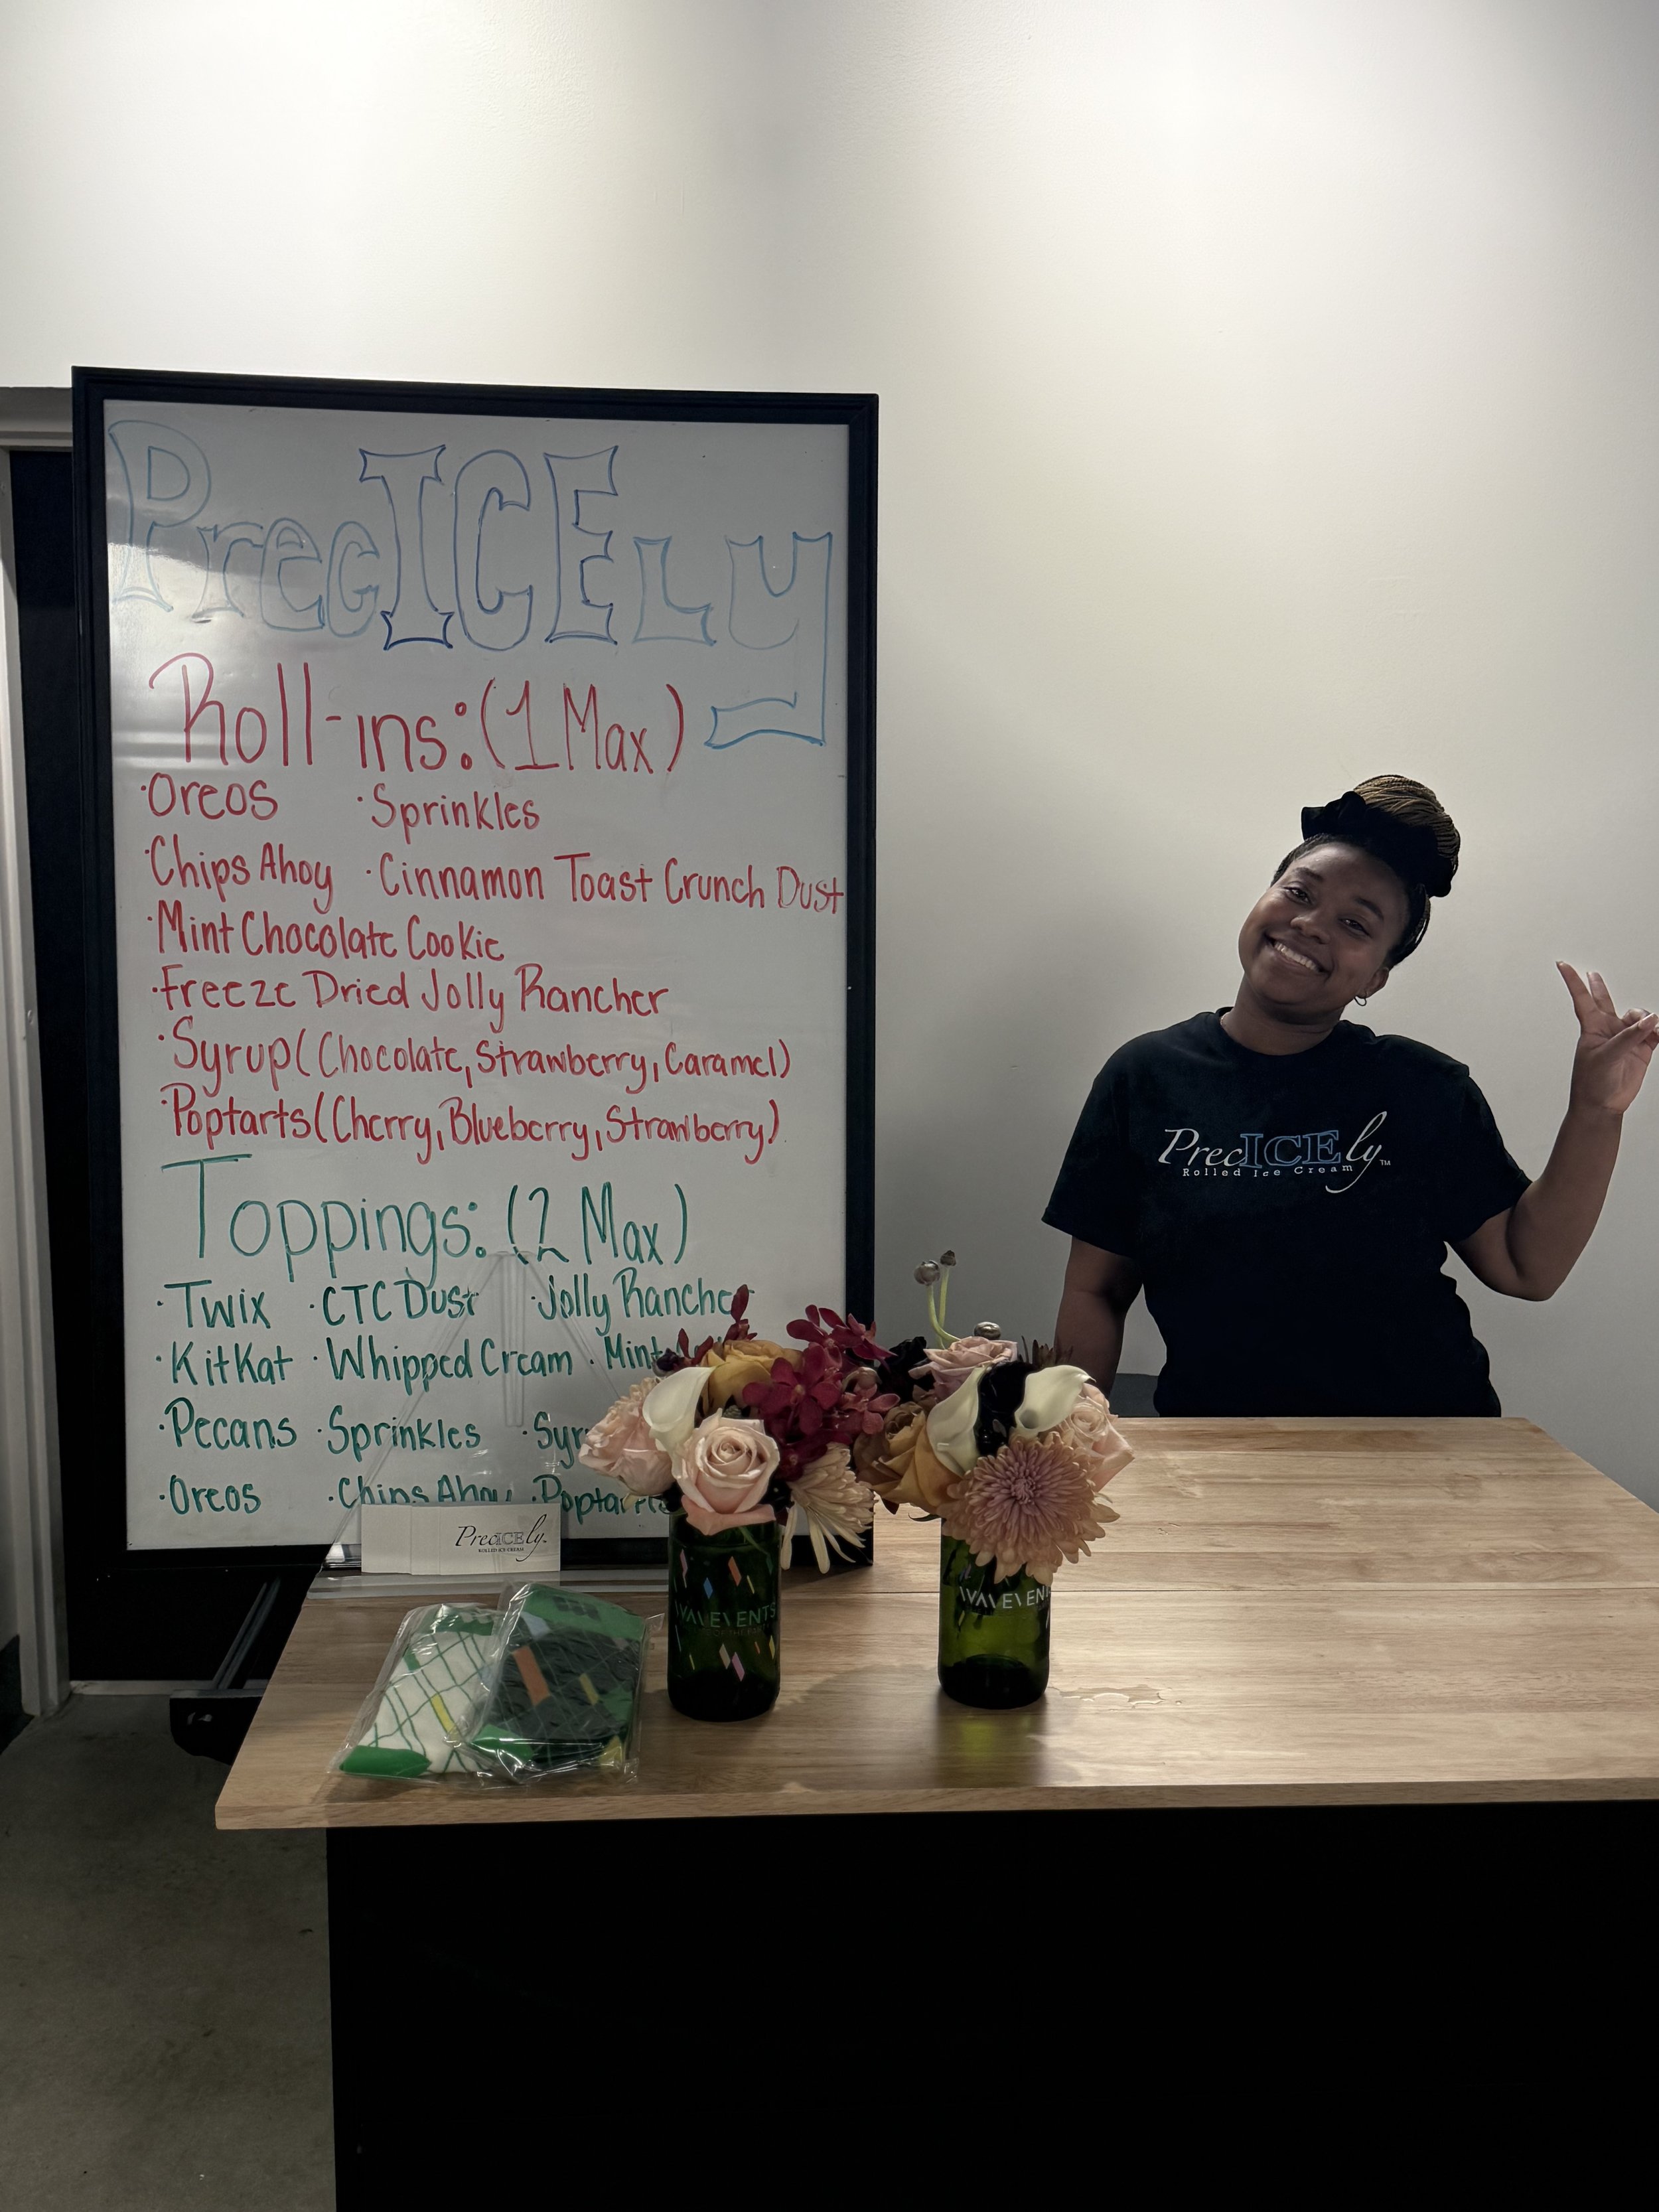 PrecICELy
Roll-ins:(1 Max)
·Oreos ·Sprinkles
·Chips Ahoy ·Cinnamon Toast Crunch Dust
·Mint Chocolate Cookie
·Freeze Dried Jolly Rancher
·Syrup(Chocolate, Strawberry, Caramel)
·Poptarts(Cherry, Blueberry, Strawberry)
Toppings: (2 Max)
·Twix ·CTC Dust ·Jolly Rancher
·KitKat ·Whipped Cream ·Mint
·Pecans ·Sprinkles
·Oreos ·Chips Ahoy ·Poptarts
PrecICEly™
Rolled Ice Cream
PrecICEly
ROLLED ICE CREAM